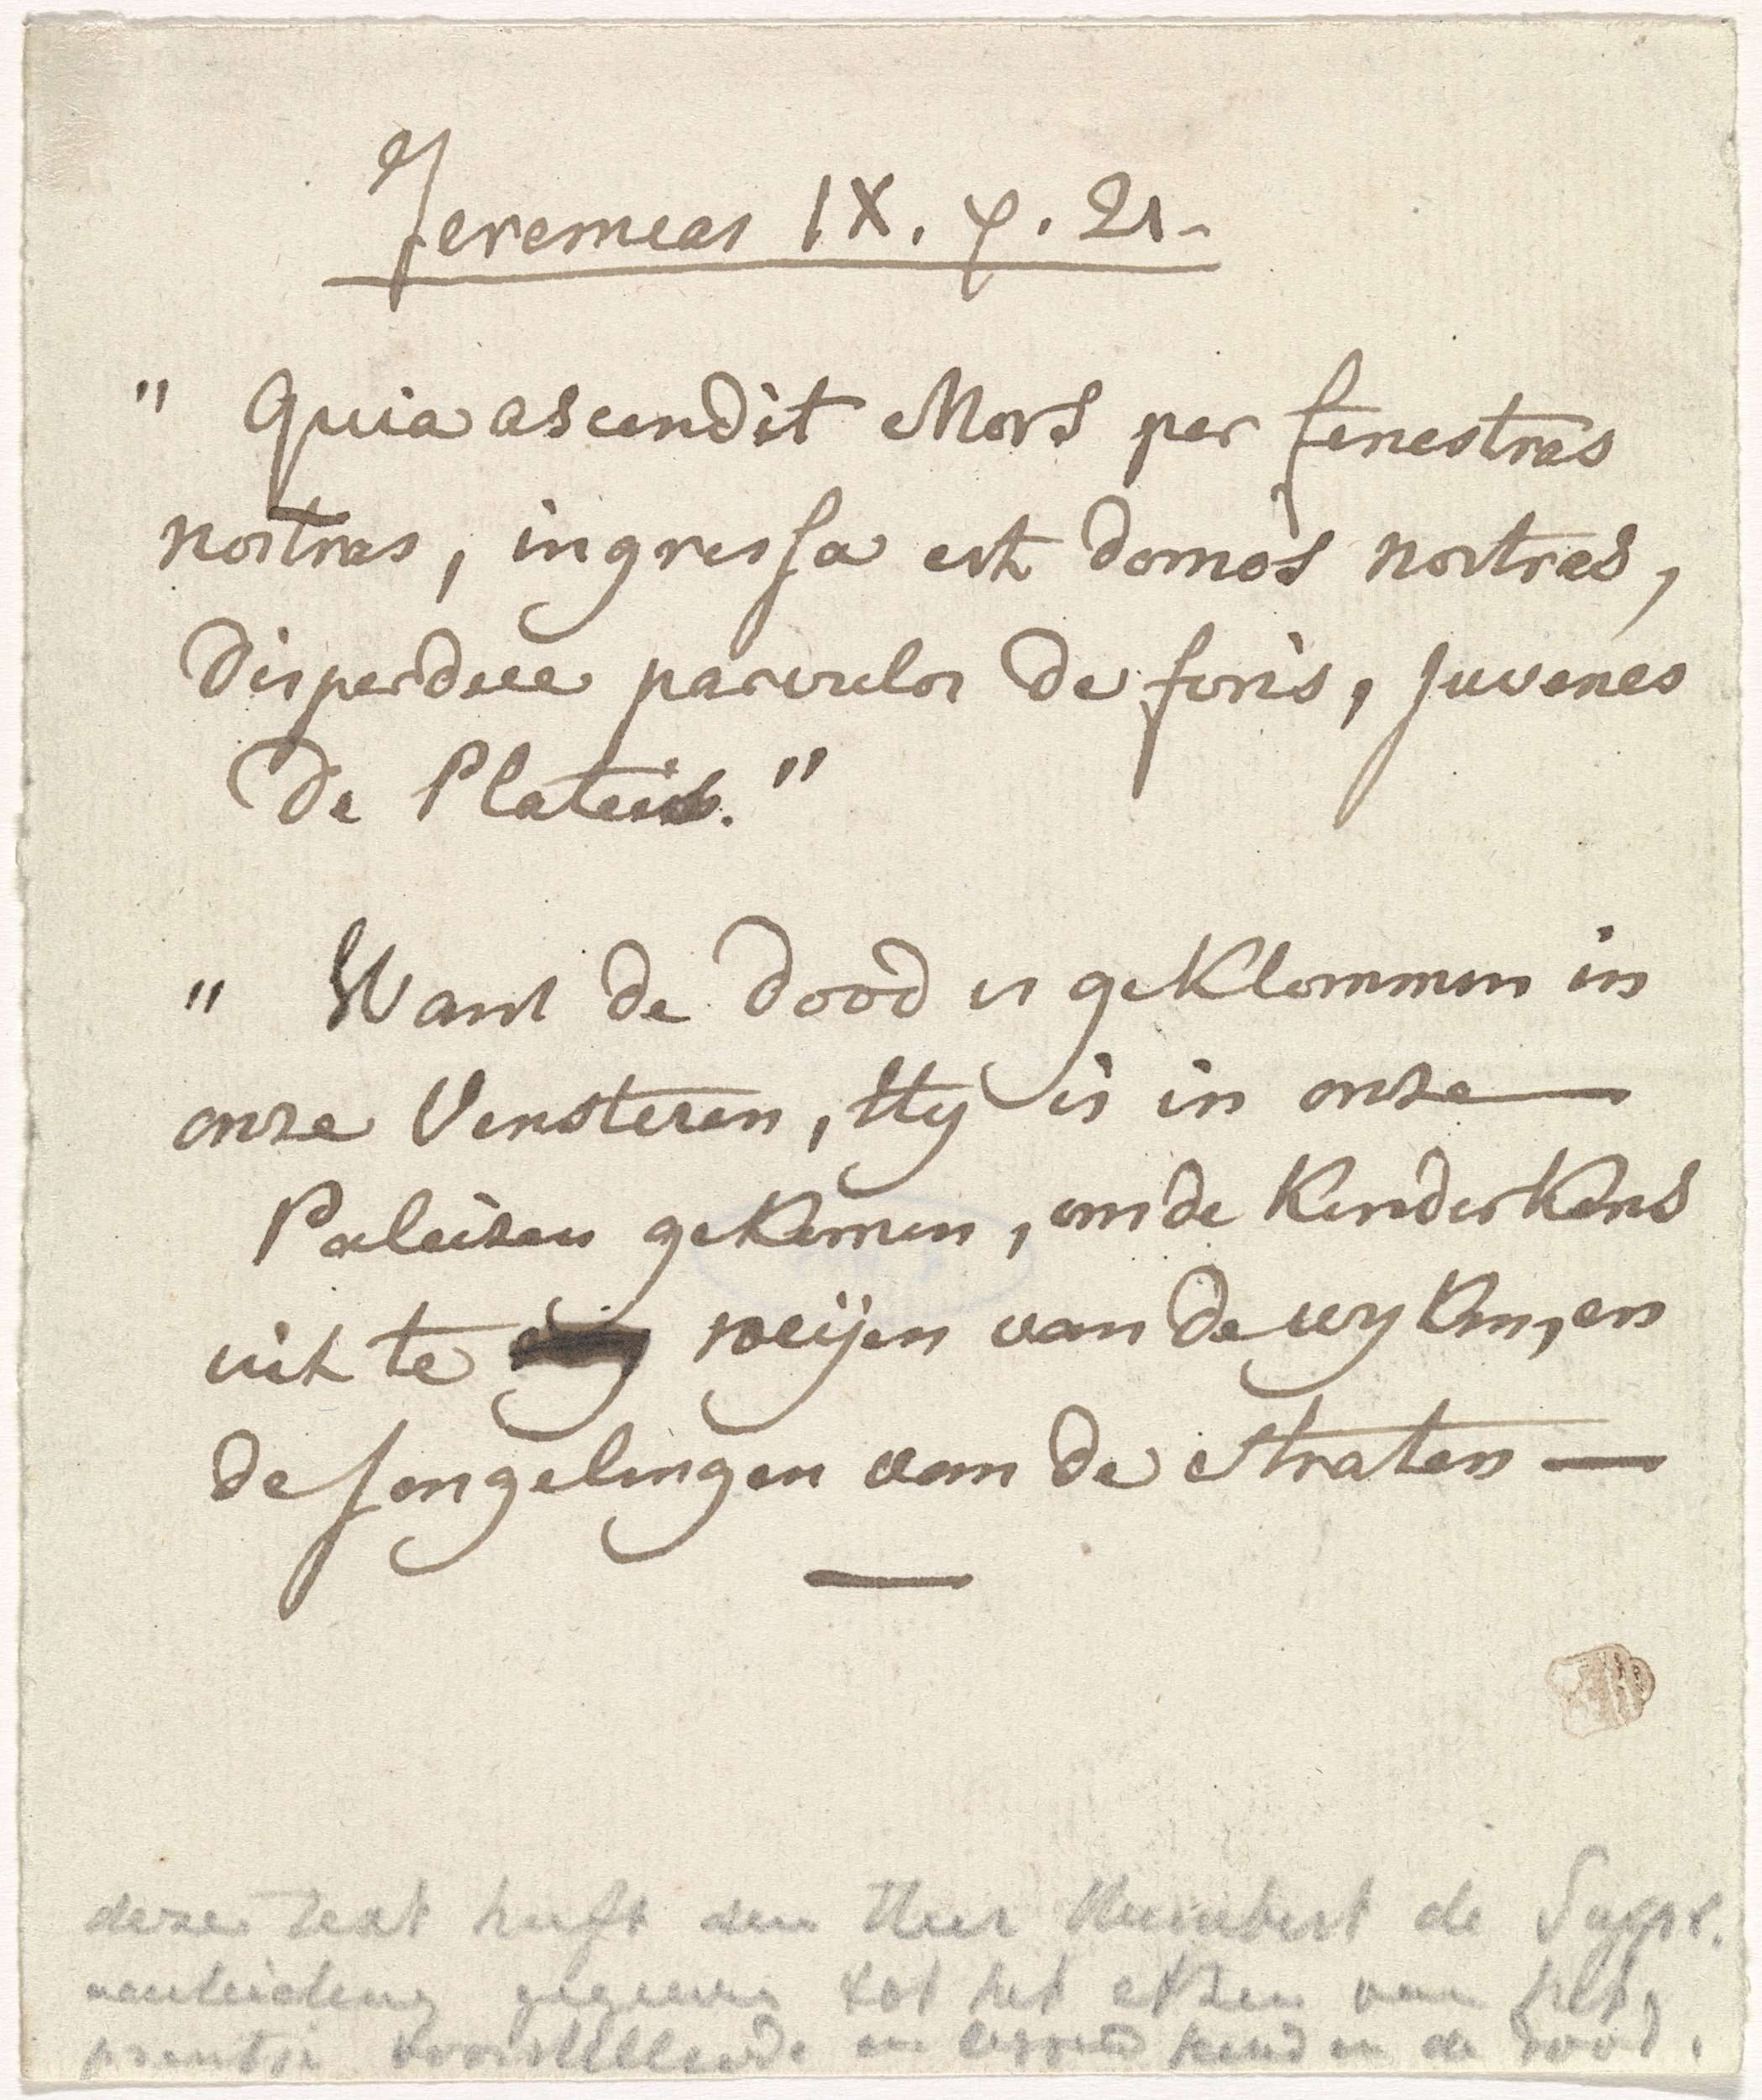 Jeremeas IX. ꝟ. 21.
" Quia ascendit Mors per fenestras
nostras, ingressa est domos nostras,
disperdere parvulos de foris, juvenes
de Plateis."
" Want de dood is geklommen in
onze Vensteren, Hy is in onze —
Paleizen gekomen, om de kinderkens
uit te roeijen van de wyken, en
de jongelingen van de straten —
deze text heeft den Heer Humbert de Super.
aanleiding gegeven tot het etsen van het
prentje voorstellende een kind en de dood.